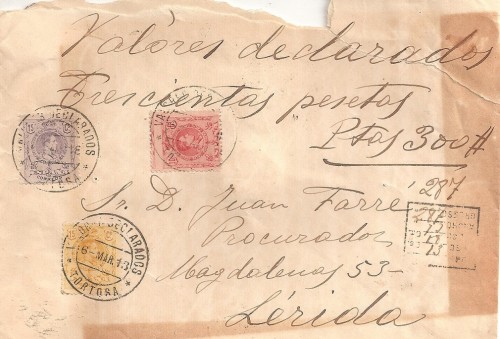 Valores declarados
Trescientas pesetas
Ptas 300#
287
Sr. D. Juan Farré
Procurador
Magdalenas 53-
Lérida
VALORES DECLARADOS
TORTOSA
VALORES DECLARADOS
6 MAR 13
TORTOSA